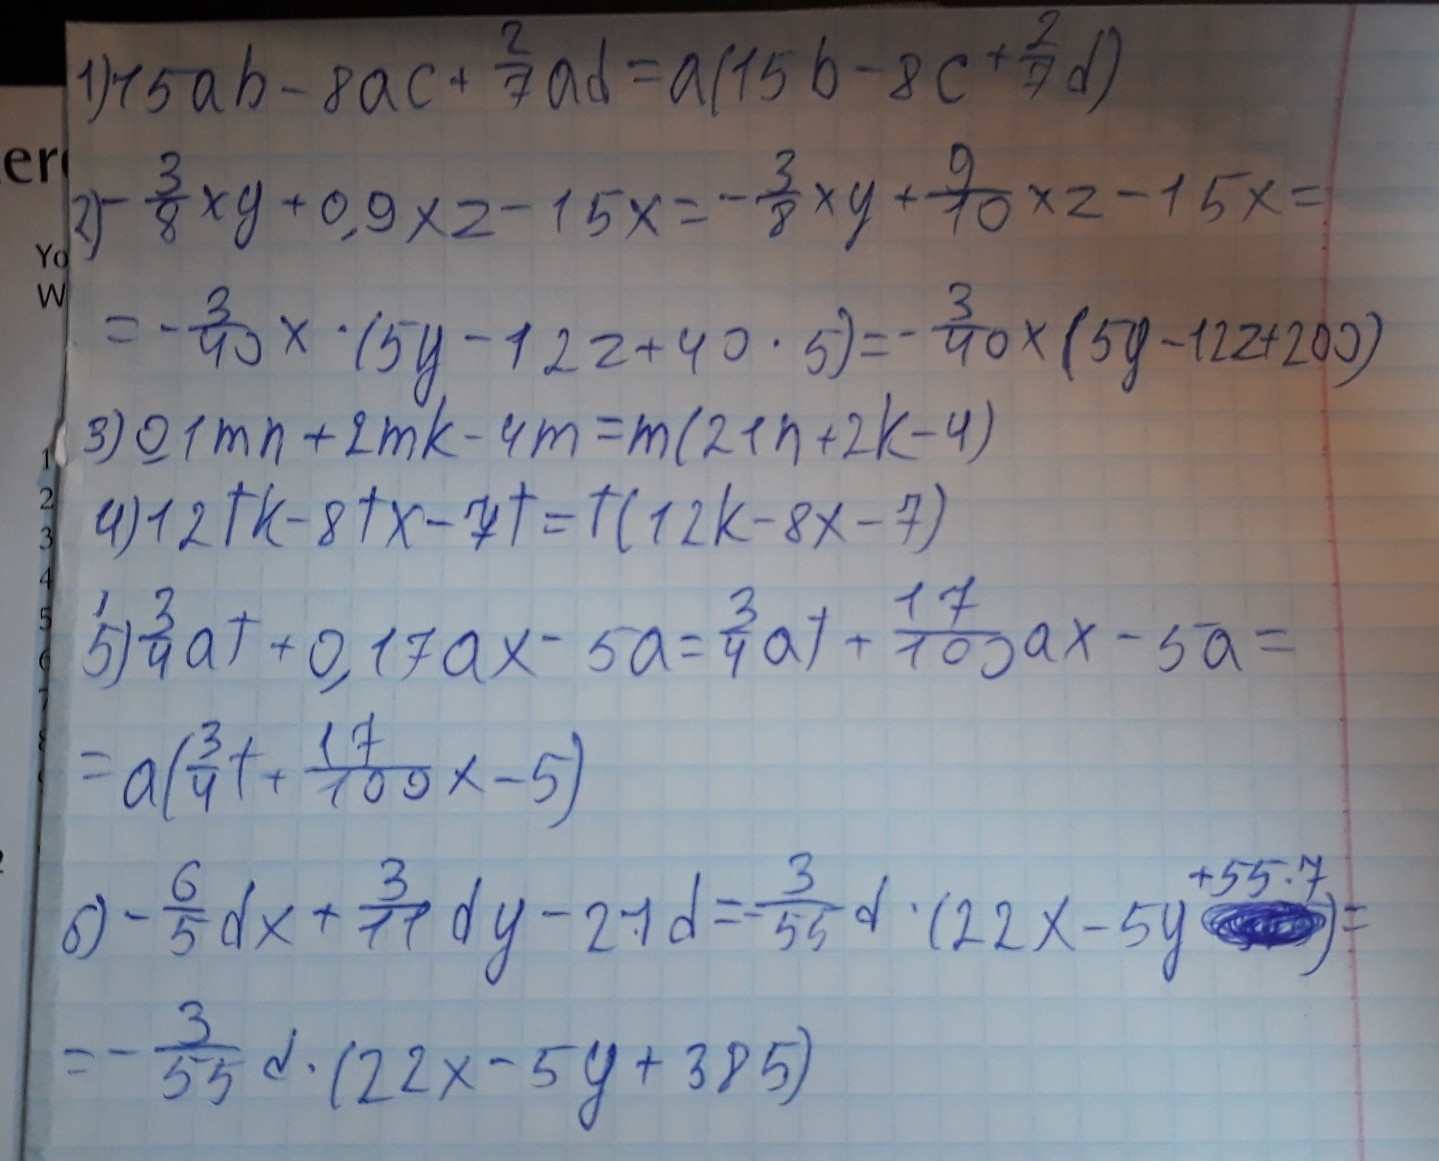 1) 15ab - 8ac + 2/7 ad = a(15b - 8c + 2/7 d)
2) - 3/8 xy + 0,9xz - 15x = - 3/8 xy + 9/10 xz - 15x =
= - 3/40 x · (5y - 12z + 40 · 5) = - 3/40 x (5y - 12z + 200)
3) 01mn + 2mk - 4m = m(21n + 2k - 4)
4) 12tk - 8tx - 7t = t(12k - 8x - 7)
5) 3/4 at + 0,17ax - 5a = 3/4 at + 17/100 ax - 5a =
= a(3/4 t + 17/100 x - 5)
6) - 6/5 dx + 3/11 dy - 21d = - 3/55 d · (22x - 5y + 55·7) =
= - 3/55 d · (22x - 5y + 385)
Yo
W
1
2
3
4
5
6
7
8